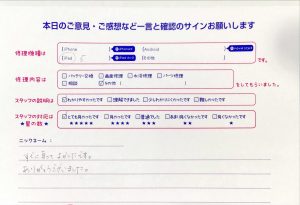 本日のご意見・ご感想など一言と確認のサインお願いします
修理機種は
iPhone
Android
iPad
その他
です。
修理内容は
バッテリー交換 画面修理 水没修理 パーツ修理
相談 その他
をしてもらいました。
スタッフの説明は
わかりやすかったです 理解できました 少しわかりにくかったです 難しかったです
スタッフの対応は
★星の数★
とても良かったです 良かったです 普通でした あまり良くなかったです 良くなかったです
★★★★★ ★★★★ ★★★ ★★ ★
ニックネーム：
すぐに直ってよかったです。
ありがとうございました。